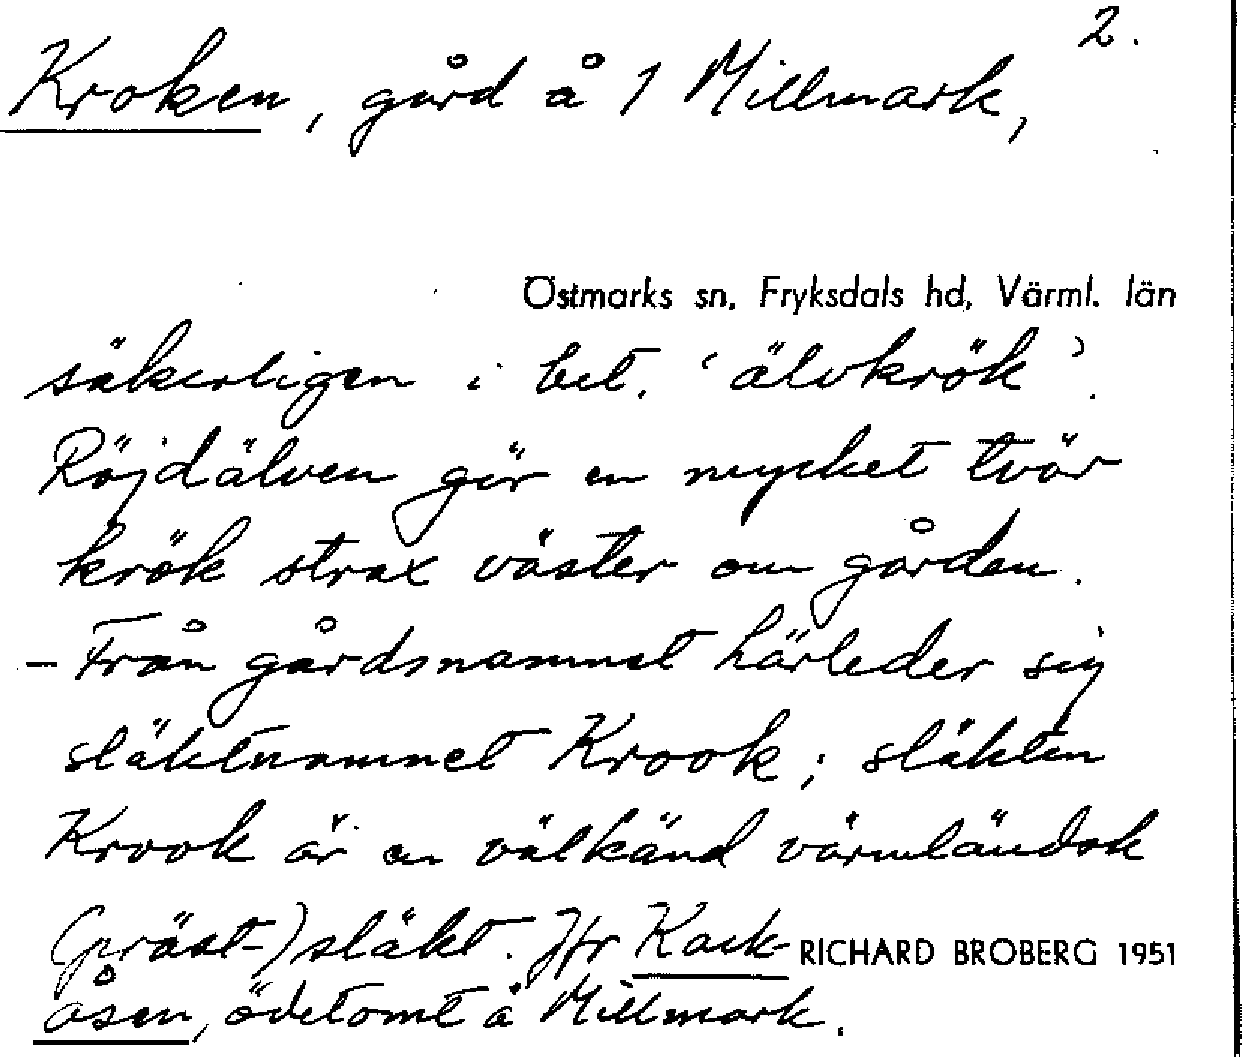 2.
Kroken, gård å 1 Millmark,
Östmarks sn, Fryksdals hd, Värml. län
säkerligen i bet. ‘älvkrök’.
Röjdälven gör en mycket tvär
krök strax väster om gården.
- Från gårdsnamnet härleder sig
släktnamnet Krook; släkten
Krook är en välkänd värmländsk
(präst-)släkt. Jfr Kack-
RICHARD BROBERG 1951
åsen, ödetomt å Millmark.